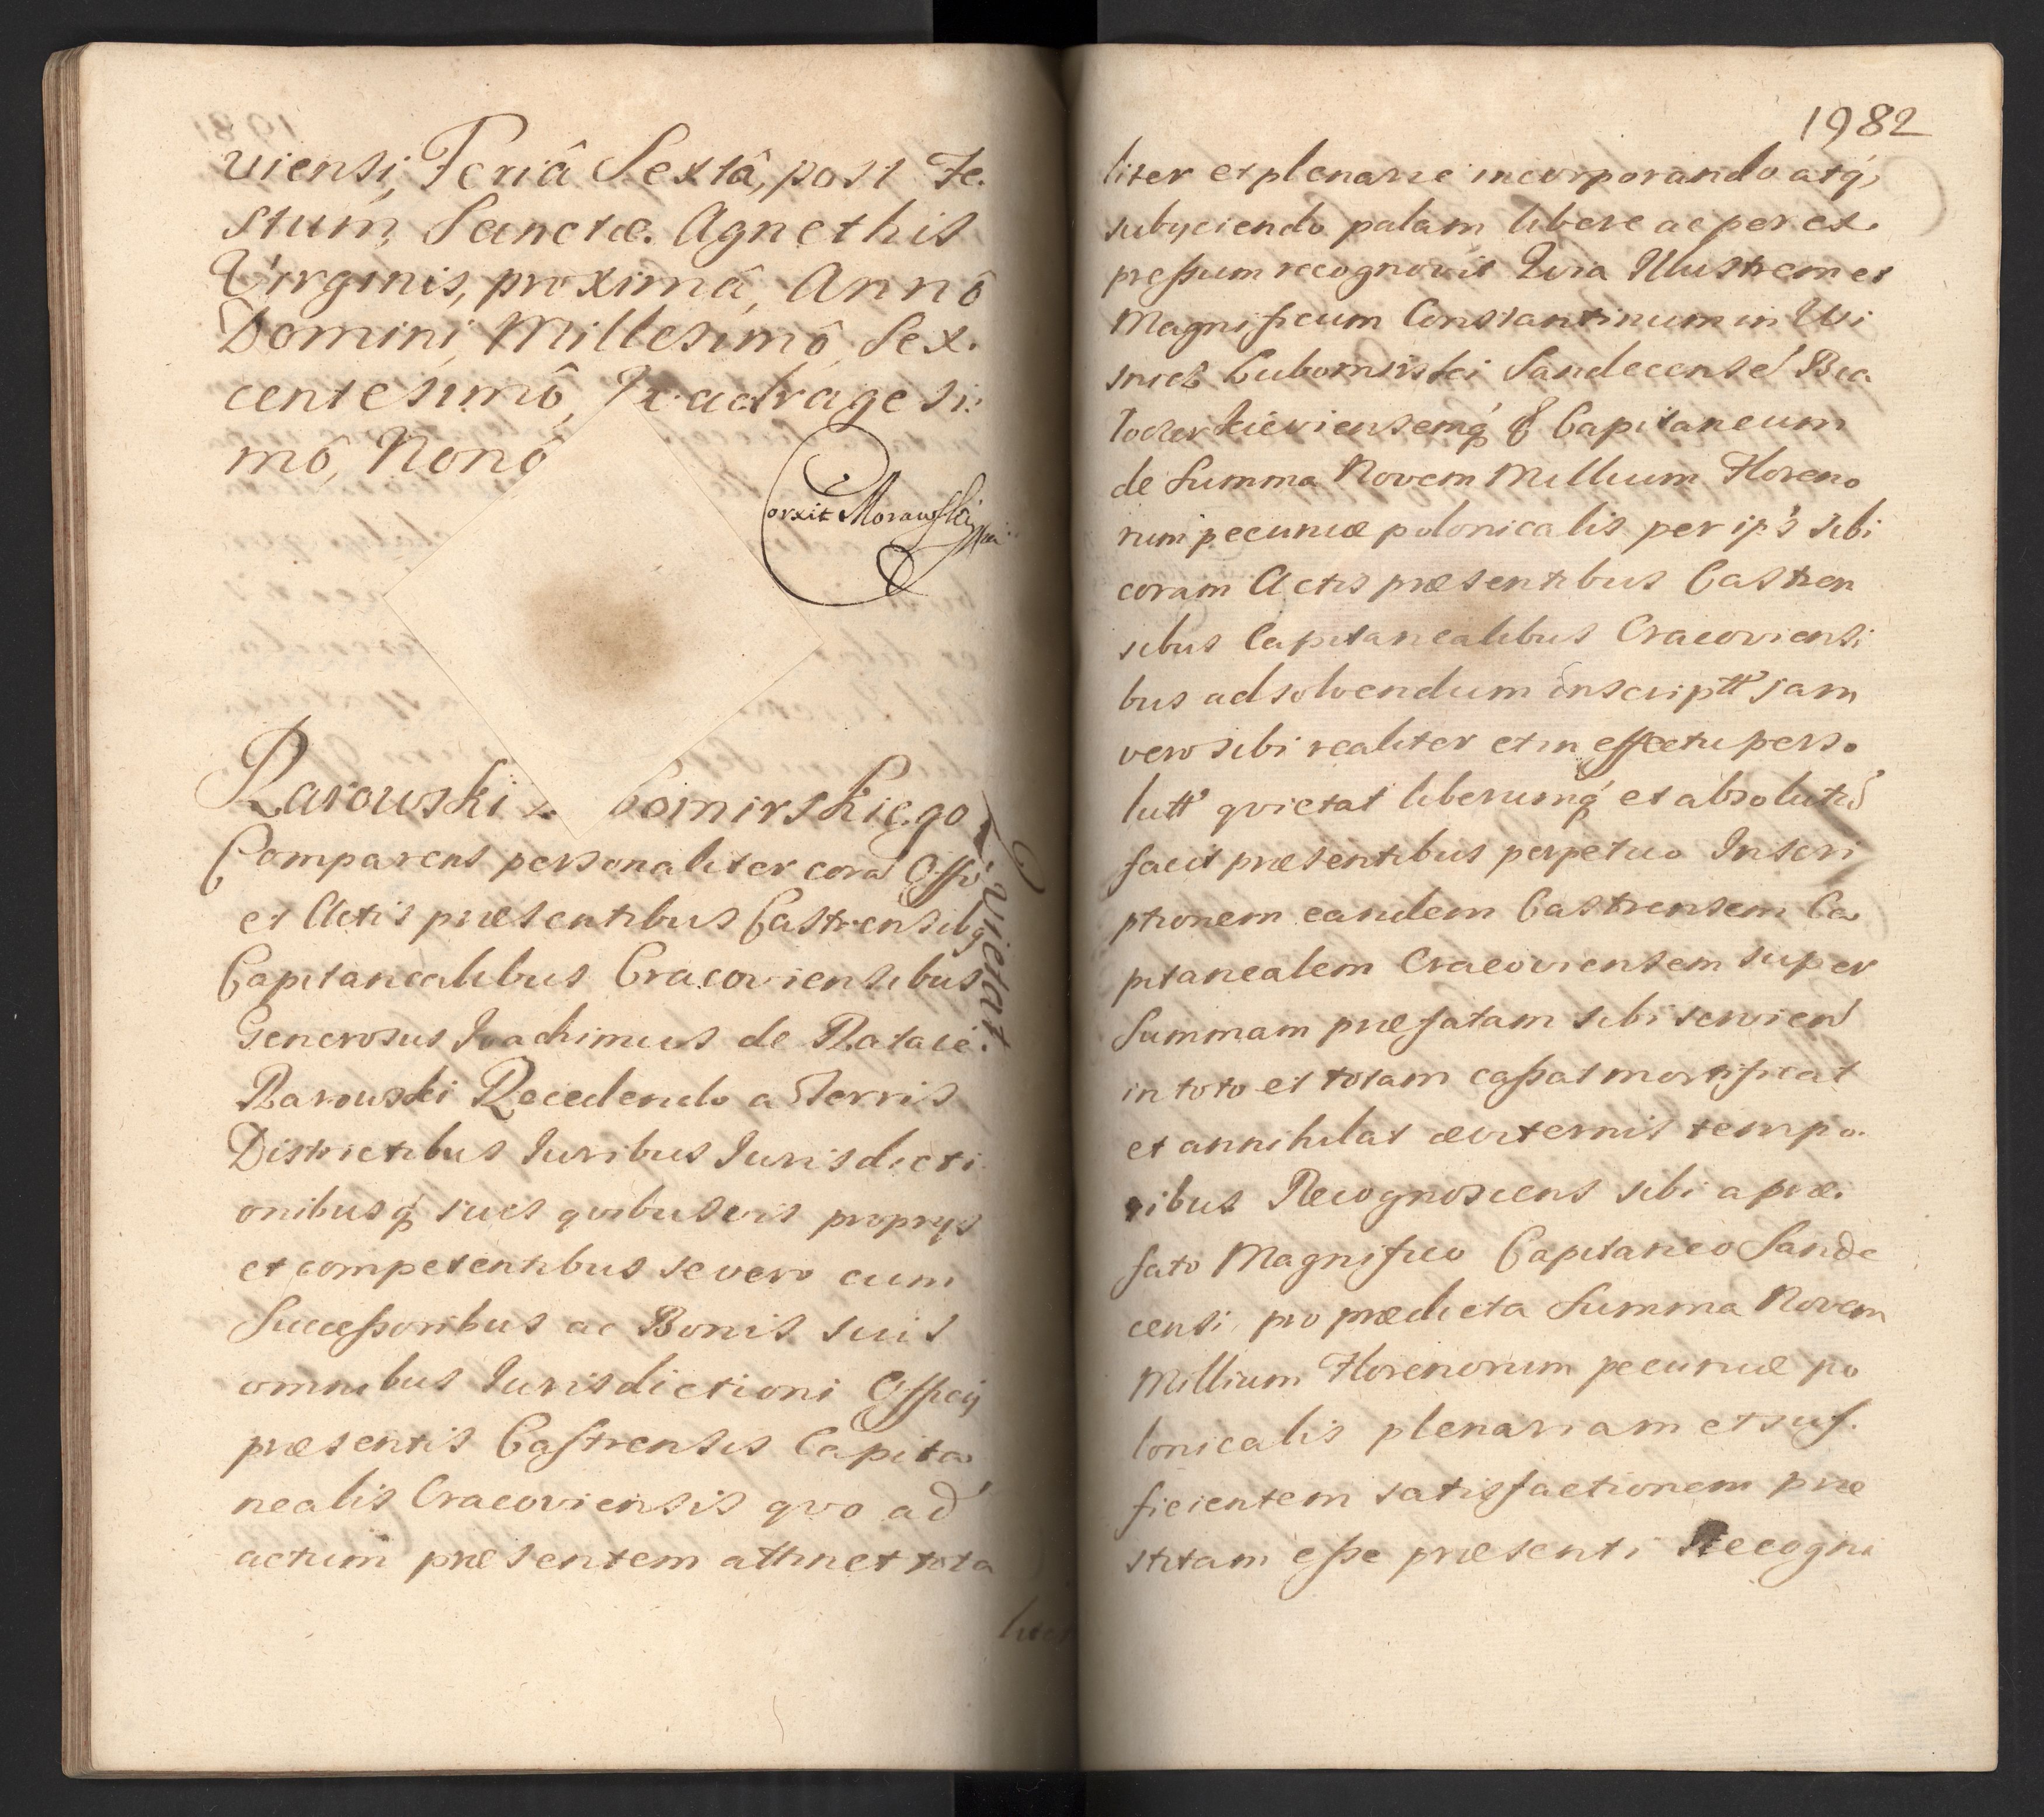 viensi, Feriâ Sextâ, post Fe.
stum, Sanctæ. Agnethis
Virginis, proximâ, Annô
Domini, Millesimô, Sex.
centesimô, Qvadragesi:
mô, Nonô
Corxit Morawski
Rarowski
Comparens personaliter corã Offő
et Actis præsentibus Castrensibq
Capitanealibus Cracoviensibus
Generosus Joachimus de Rataie.
Rarowski Recedendo a Terris
Districtibus Iuribus Iurisdicti
onibusq́ suis qvibusvis proprys
et competentibus se vero cum
Succeßoribus ac Bonis suis
omnibus Iurisdictioni Officÿ
præsentis Castrensis Capita
nealis Cracoviensis qvo ad
actum præsentem attinet tota
Qvietat
1982
liter et plenarie incorporando atq́,
subyciendo palam libere ac per ex.
preßum recognovit Qvia Illustrem et
Magnificum Constantinum in Wi
snicz Lubomirski Sandecensé Bia
łocerkieviensemq́ Capitaneum
de Summa Novem Millium Floreno
rum pecuniæ polonicalis per ip's sibi
coram Actis præsentibus Castren
sibus Capitanealibus Cracoviensi
bus ad solvendum inscriptt' jam
vero sibi realiter et in effectu perso
lutt' qvietat liberumq́ et absolutũ
facit præsentibus perpetuo Inscri
ptionem eandem Castrensem Ca
pitanealem Cracoviensem super
Summam præfatam sibi servien̄
in toto et totam caßat mortificat
et annihilat æviternis tempo.
ribus Recognoscens sibi a præ.
fato Magnifico Capitaneo Sande
censi pro prædicta Summa Novem
Millium Florenorum pecuniæ po
lonicalis plenariam et suf.
ficientem satisfactionem præ
stitam eße præsenti Recogni